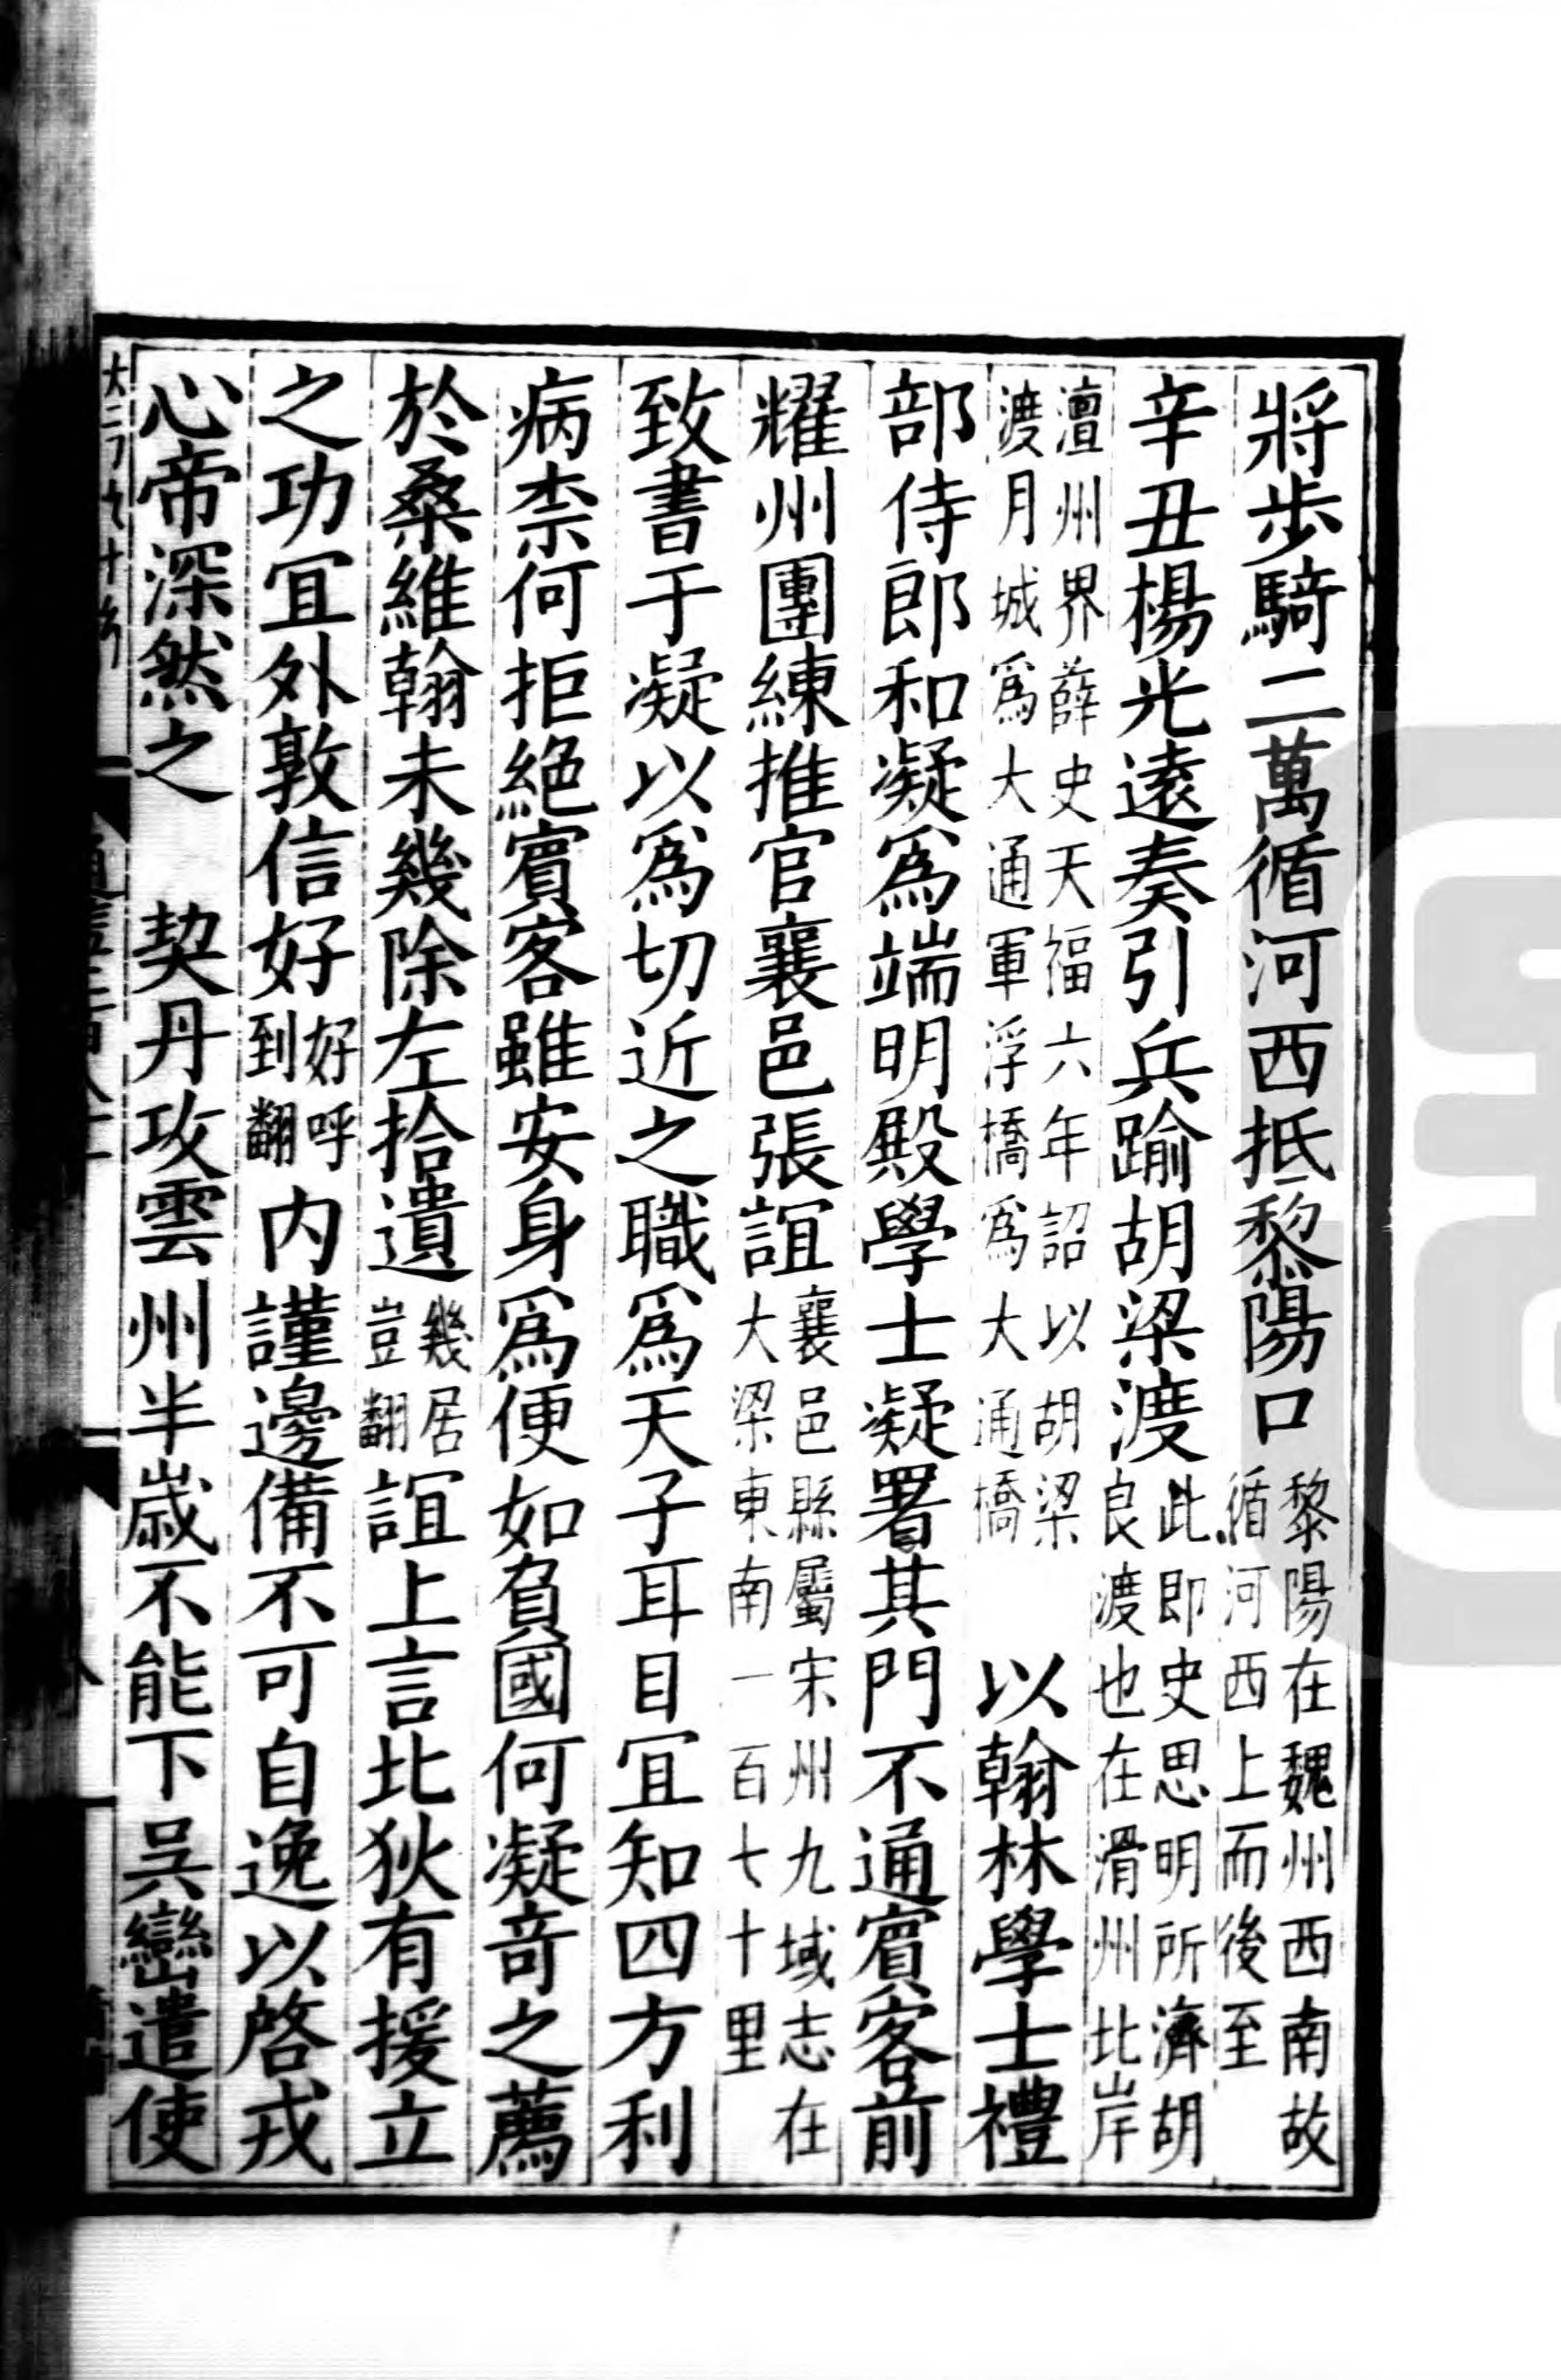 將步騎二萬循河西抵黎陽口黎陽在魏州西南故循河西上而後至
辛丑楊光遠奏引兵踰胡梁渡此即史思明所濟胡良渡也在滑州北岸
澶州界薛史天福六年詔以胡梁渡月城爲大通軍浮橋爲大通橋 以翰林學士禮
部侍郎和凝爲端明殿學士凝署其門不通賓客前
耀州團練推官襄邑張誼襄邑縣屬宋州九域志在大梁東南一百七十里
致書于凝以爲切近之職爲天子耳目宜知四方利
病柰何拒絕賓客雖安身爲便如負國何凝竒之薦
於桑維翰未幾除左拾遺幾居豈翻誼上言北狄有援立
之功宜外敦信好好呼到翻內謹邊備不可自逸以啓戎
心帝深然之 契丹攻雲州半歲不能下吳巒遣使